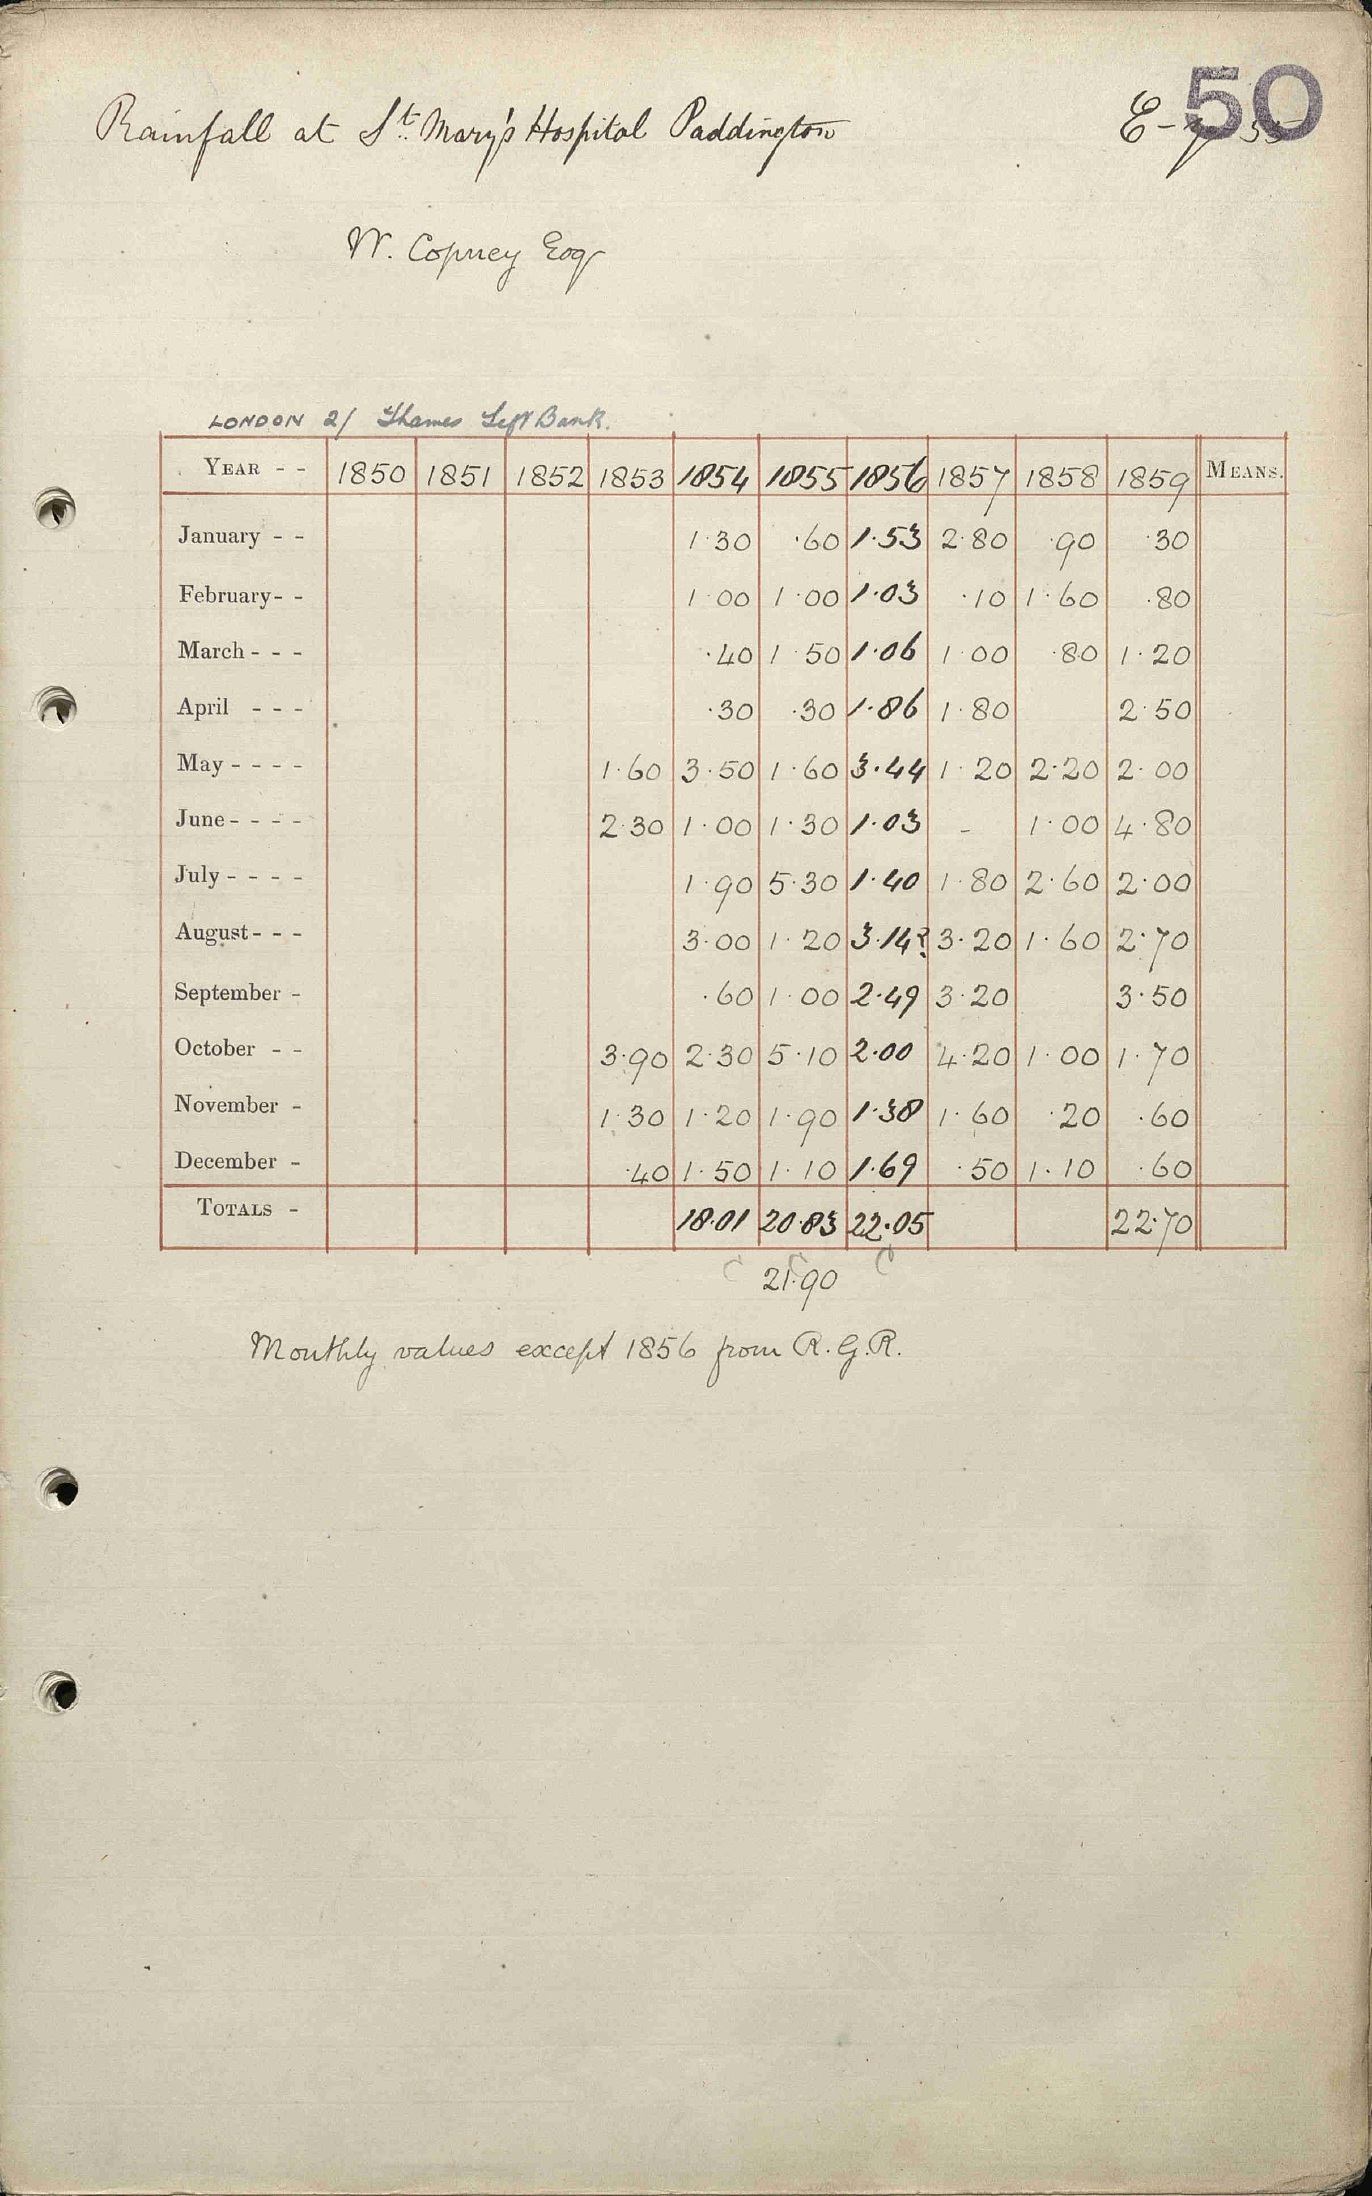 50
Rainfall at St. Mary's Hospital Paddington E-
W. Copney Esq
LONDON 2/ Thames Left Bank.
YEAR - - 1850 1851 1852 1853 1854 1855 1856 1857 1858 1859 MEANS.
January - - 1·30 ·60 1·53 2·80 ·90 ·30
February - - 1·00 1·00 1·03 ·10 1·60 ·80
March - - - ·40 1·50 1·06 1·00 ·80 1·20
April - - - ·30 ·30 1·86 1·80 2·50
May - - - - 1·60 3·50 1·60 3·44 1·20 2·20 2·00
June - - - - 2·30 1·00 1·30 1·03 - 1·00 4·80
July - - - - 1·90 5·30 1·40 1·80 2·60 2·00
August - - - 3·00 1·20 3·14? 3·20 1·60 2·70
September - ·60 1·00 2·49 3·20 3·50
October - - 3·90 2·30 5·10 2·00 4·20 1·00 1·70
November - 1·30 1·20 1·90 1·38 1·60 ·20 ·60
December - ·40 1·50 1·10 1·69 ·50 1·10 ·60
TOTALS - 18·01 20·83 22·05 22·70
C C C
21·90
Monthly values except 1856 from R.G.R.